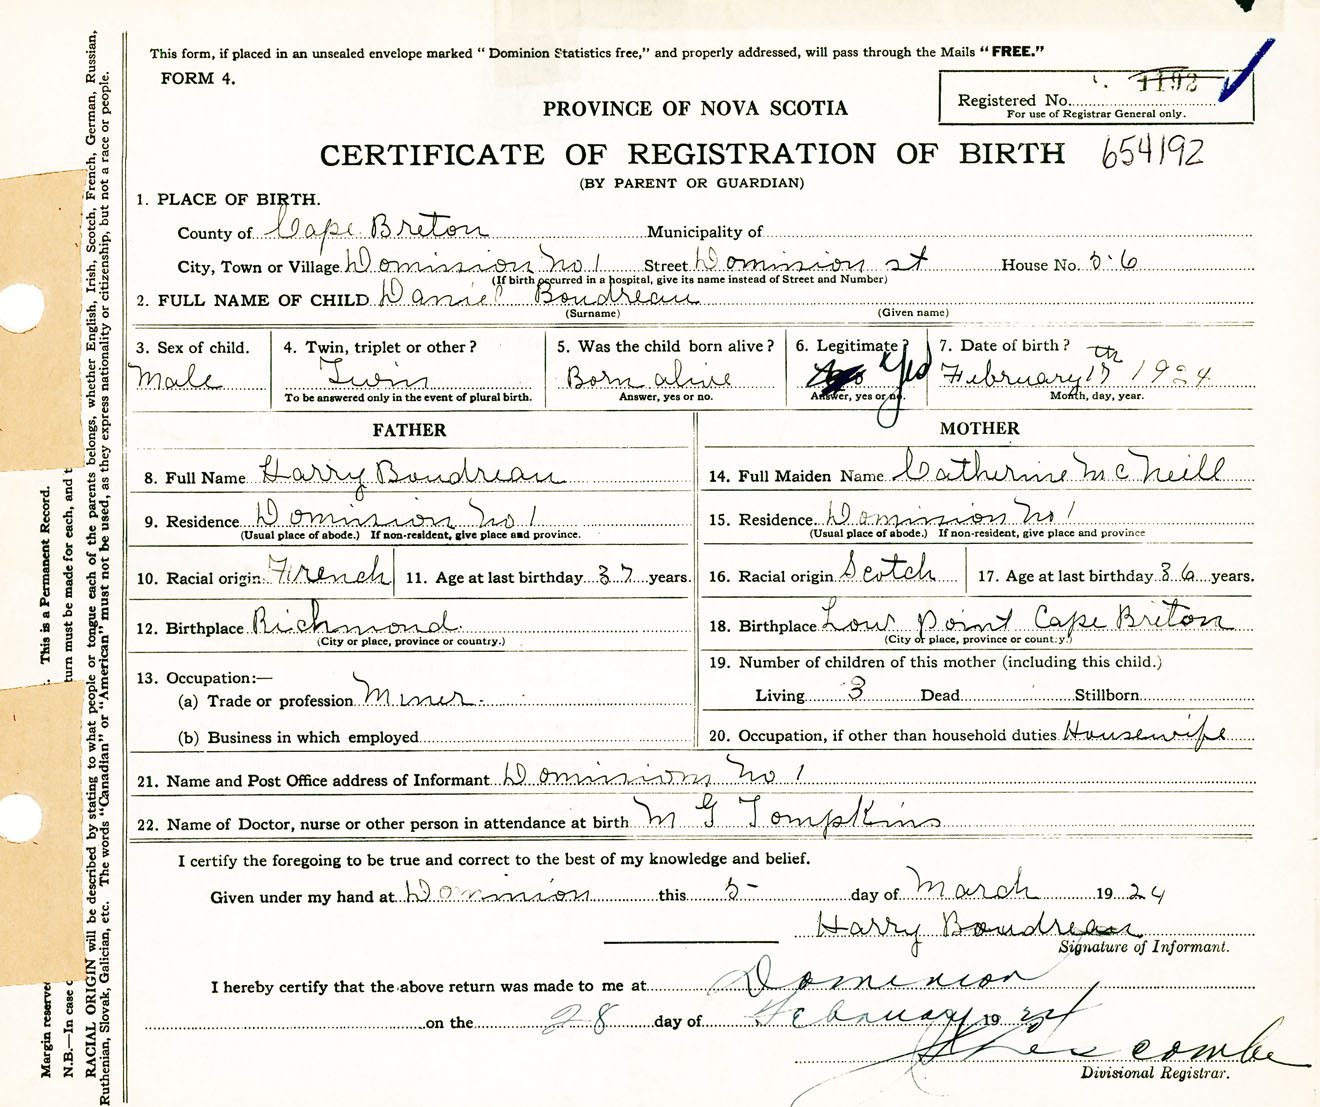 This form, if placed in an unsealed envelope marked “ Dominion Statistics free,” and properly addressed, will pass through the Mails “FREE.”
FORM 4.
1192
Registered No.
For use of Registrar General only.
PROVINCE OF NOVA SCOTIA
CERTIFICATE OF REGISTRATION OF BIRTH 654192
(BY PARENT OR GUARDIAN)
1. PLACE OF BIRTH.
County of Cape Breton Municipality of
City, Town or Village Dominion No 1 Street Dominion st House No. 56
(If birth occurred in a hospital, give its name instead of Street and Number)
2. FULL NAME OF CHILD Daniel Boudreau
(Surname) (Given name)
3. Sex of child. 4. Twin, triplet or other? 5. Was the child born alive? 6. Legitimate? 7. Date of birth?
Male Twin Born alive Yes February 17th 1924
To be answered only in the event of plural birth. Answer, yes or no. Answer, yes or no. Month, day, year.
FATHER MOTHER
8. Full Name Harry Boudreau 14. Full Maiden Name Catherine McNeill
9. Residence Dominion No 1 15. Residence Dominion No 1
(Usual place of abode.) If non-resident, give place and province. (Usual place of abode.) If non-resident, give place and province
10. Racial origin: French 11. Age at last birthday 37 years. 16. Racial origin Scotch 17. Age at last birthday 36 years.
12. Birthplace Richmond 18. Birthplace Low Point Cape Briton
(City or place, province or country.) (City or place, province or country.)
13. Occupation:— 19. Number of children of this mother (including this child.)
(a) Trade or profession Miner. Living 3 Dead Stillborn
(b) Business in which employed 20. Occupation, if other than household duties Housewife
21. Name and Post Office address of Informant Dominion No 1
22. Name of Doctor, nurse or other person in attendance at birth M G Tompkins
I certify the foregoing to be true and correct to the best of my knowledge and belief.
Given under my hand at Dominion this 5- day of March 1924
Harry Boudreau
Signature of Informant.
I hereby certify that the above return was made to me at Dominion
on the 28 day of February 1924
Divisional Registrar.
Margin reserved
This is a Permanent Record.
N.B.—In case
turn must be made for each, and
RACIAL ORIGIN will be described by stating to what people or tongue each of the parents belongs, whether English, Irish, Scotch, French, German, Russian,
Ruthenian, Slovak, Galician, etc. The words “Canadian” or “American” must not be used, as they express nationality or citizenship, but not a race or people.